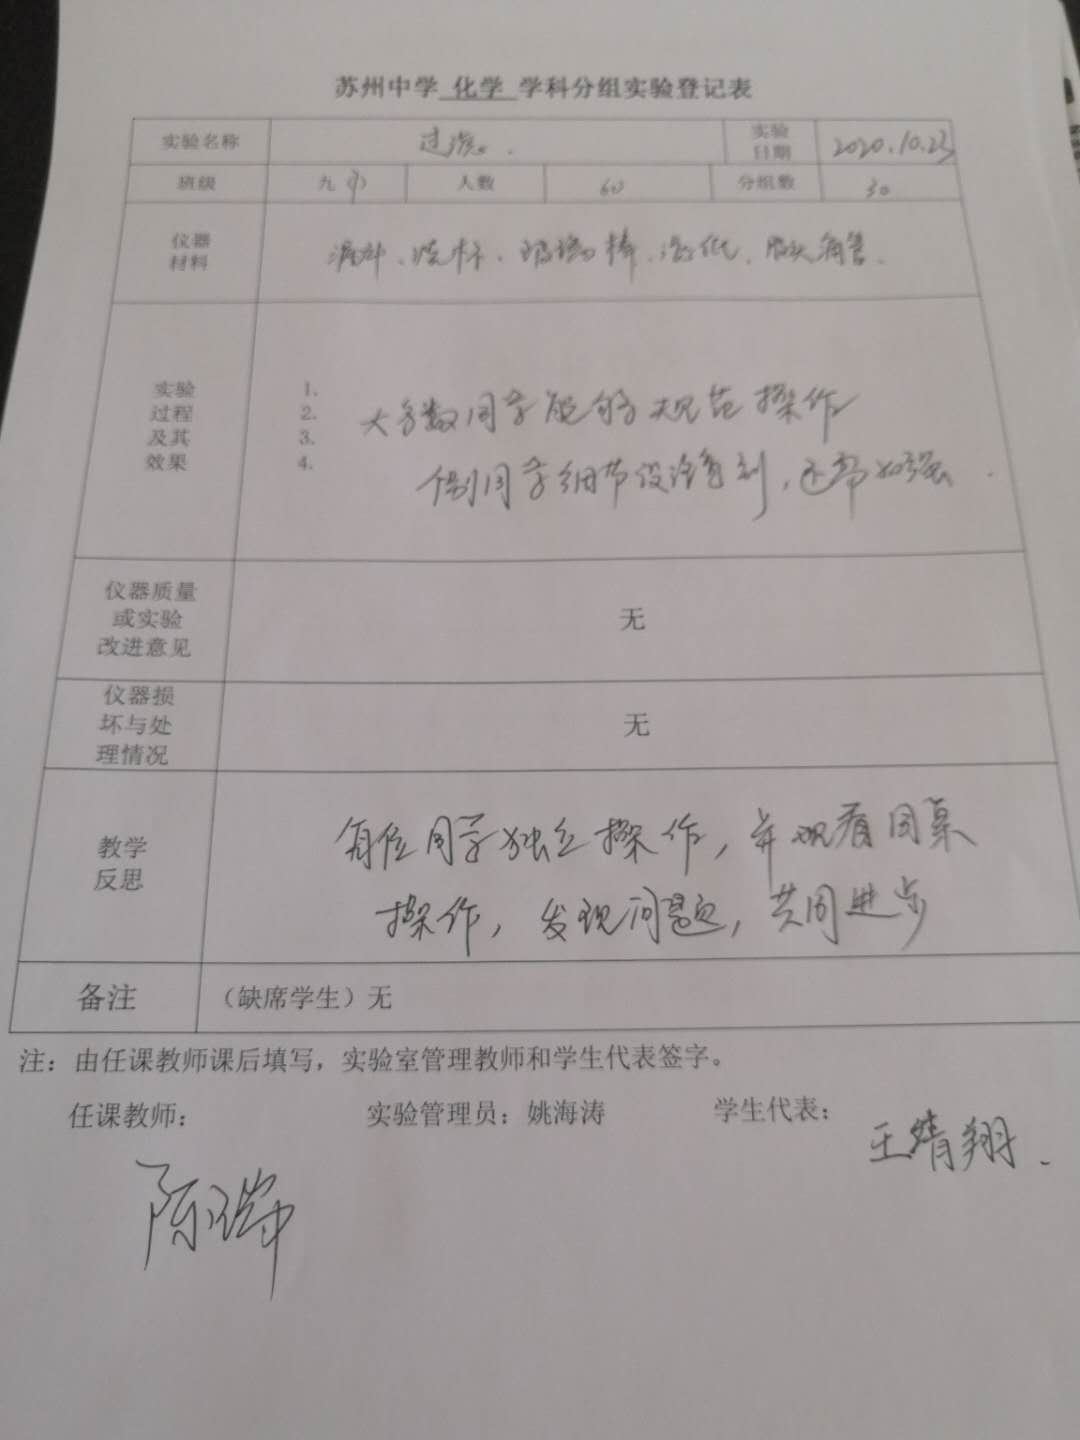 苏州中学 化学 学科分组实验登记表
实验名称 过滤. 实验日期 2020.10.23
班级 九 人数 60 分组数 30
仪器材料 漏斗、烧杯、玻璃棒、滤纸、胶头滴管.
实验过程及其效果
1.
2.
3.
4.
大多数同学能够规范操作
个别同学细节没注意到,还需加强.
仪器质量或实验改进意见 无
仪器损坏与处理情况 无
教学反思 每位同学独立操作,并观看同桌
操作,发现问题,共同进步
备注 (缺席学生)无
注:由任课教师课后填写,实验室管理教师和学生代表签字。
任课教师: 实验管理员:姚海涛 学生代表:
王婧翔.
陈